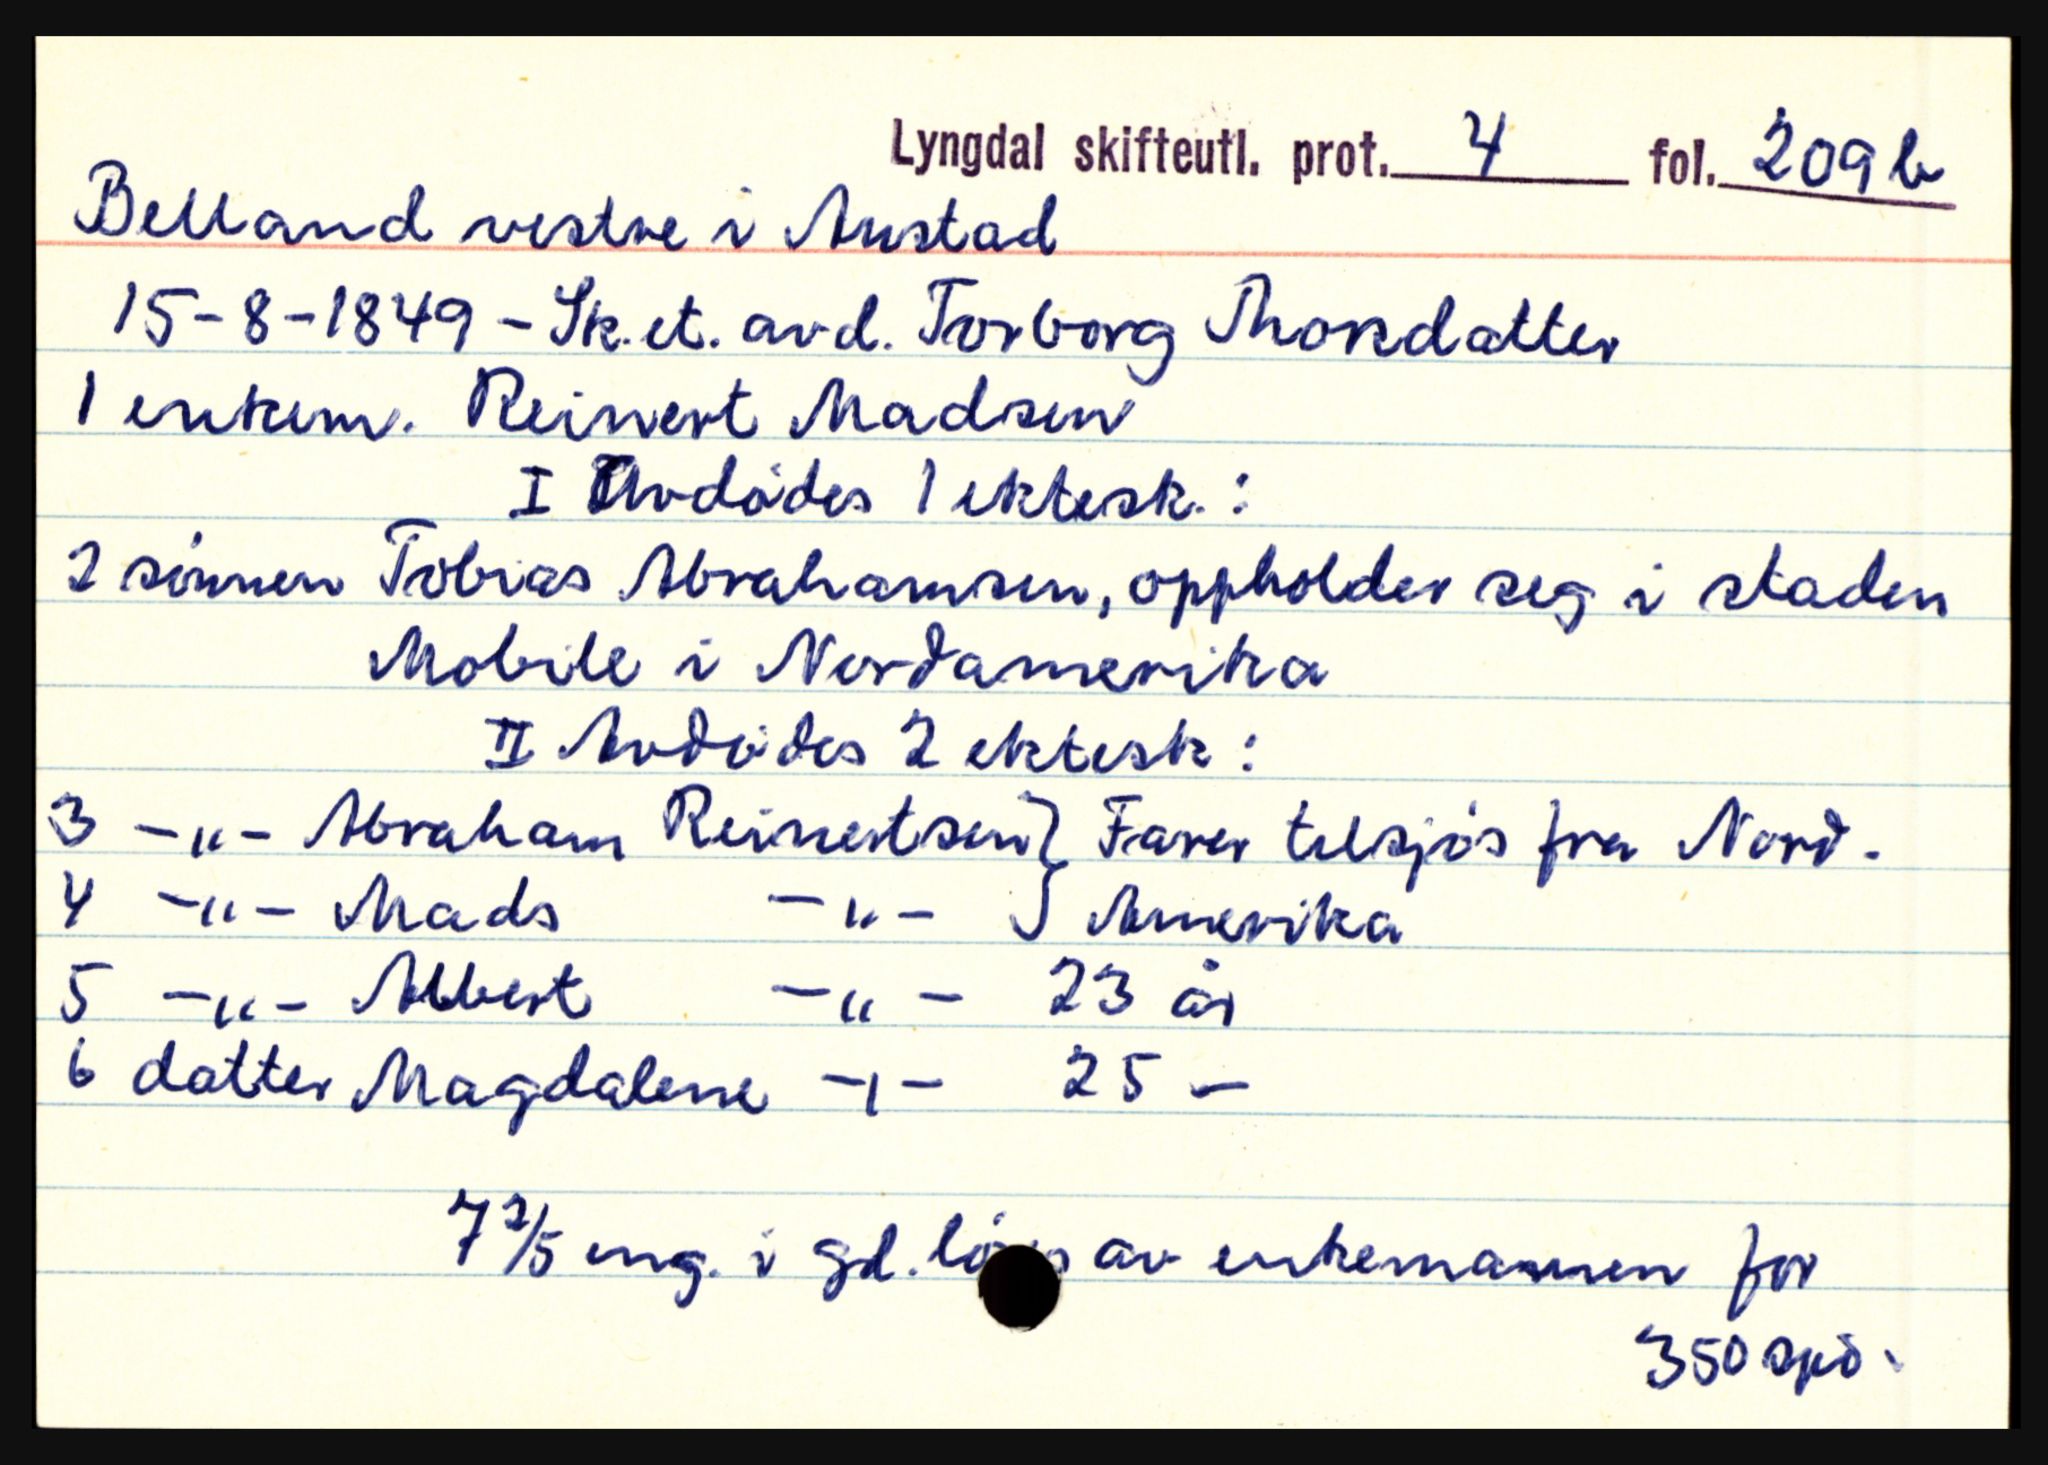 Lyngdal skifteutl. prot. 4 fol. 209 b
Belland vestre i Austad
15-8-1849 - Sk. et. avd. Torborg Thorsdatter
1 enkem. Reinert Madsen
I Avdødes 1 ektesk. :
2 sønnen Tobias Abrahamsen, oppholder seg i staden
Mobile i Nordamerika
II Avdødes 2 ektesk :
3 -"- Abraham Reinertsen } Farer tilsjøs fra Nord.
4 -"- Mads -"- } Amerika
5 -"- Albert -"- 23 år
6 datter Magdalene -"- 25 -
7 2/5 eng. i gd. av enkemannen for
350 spd.